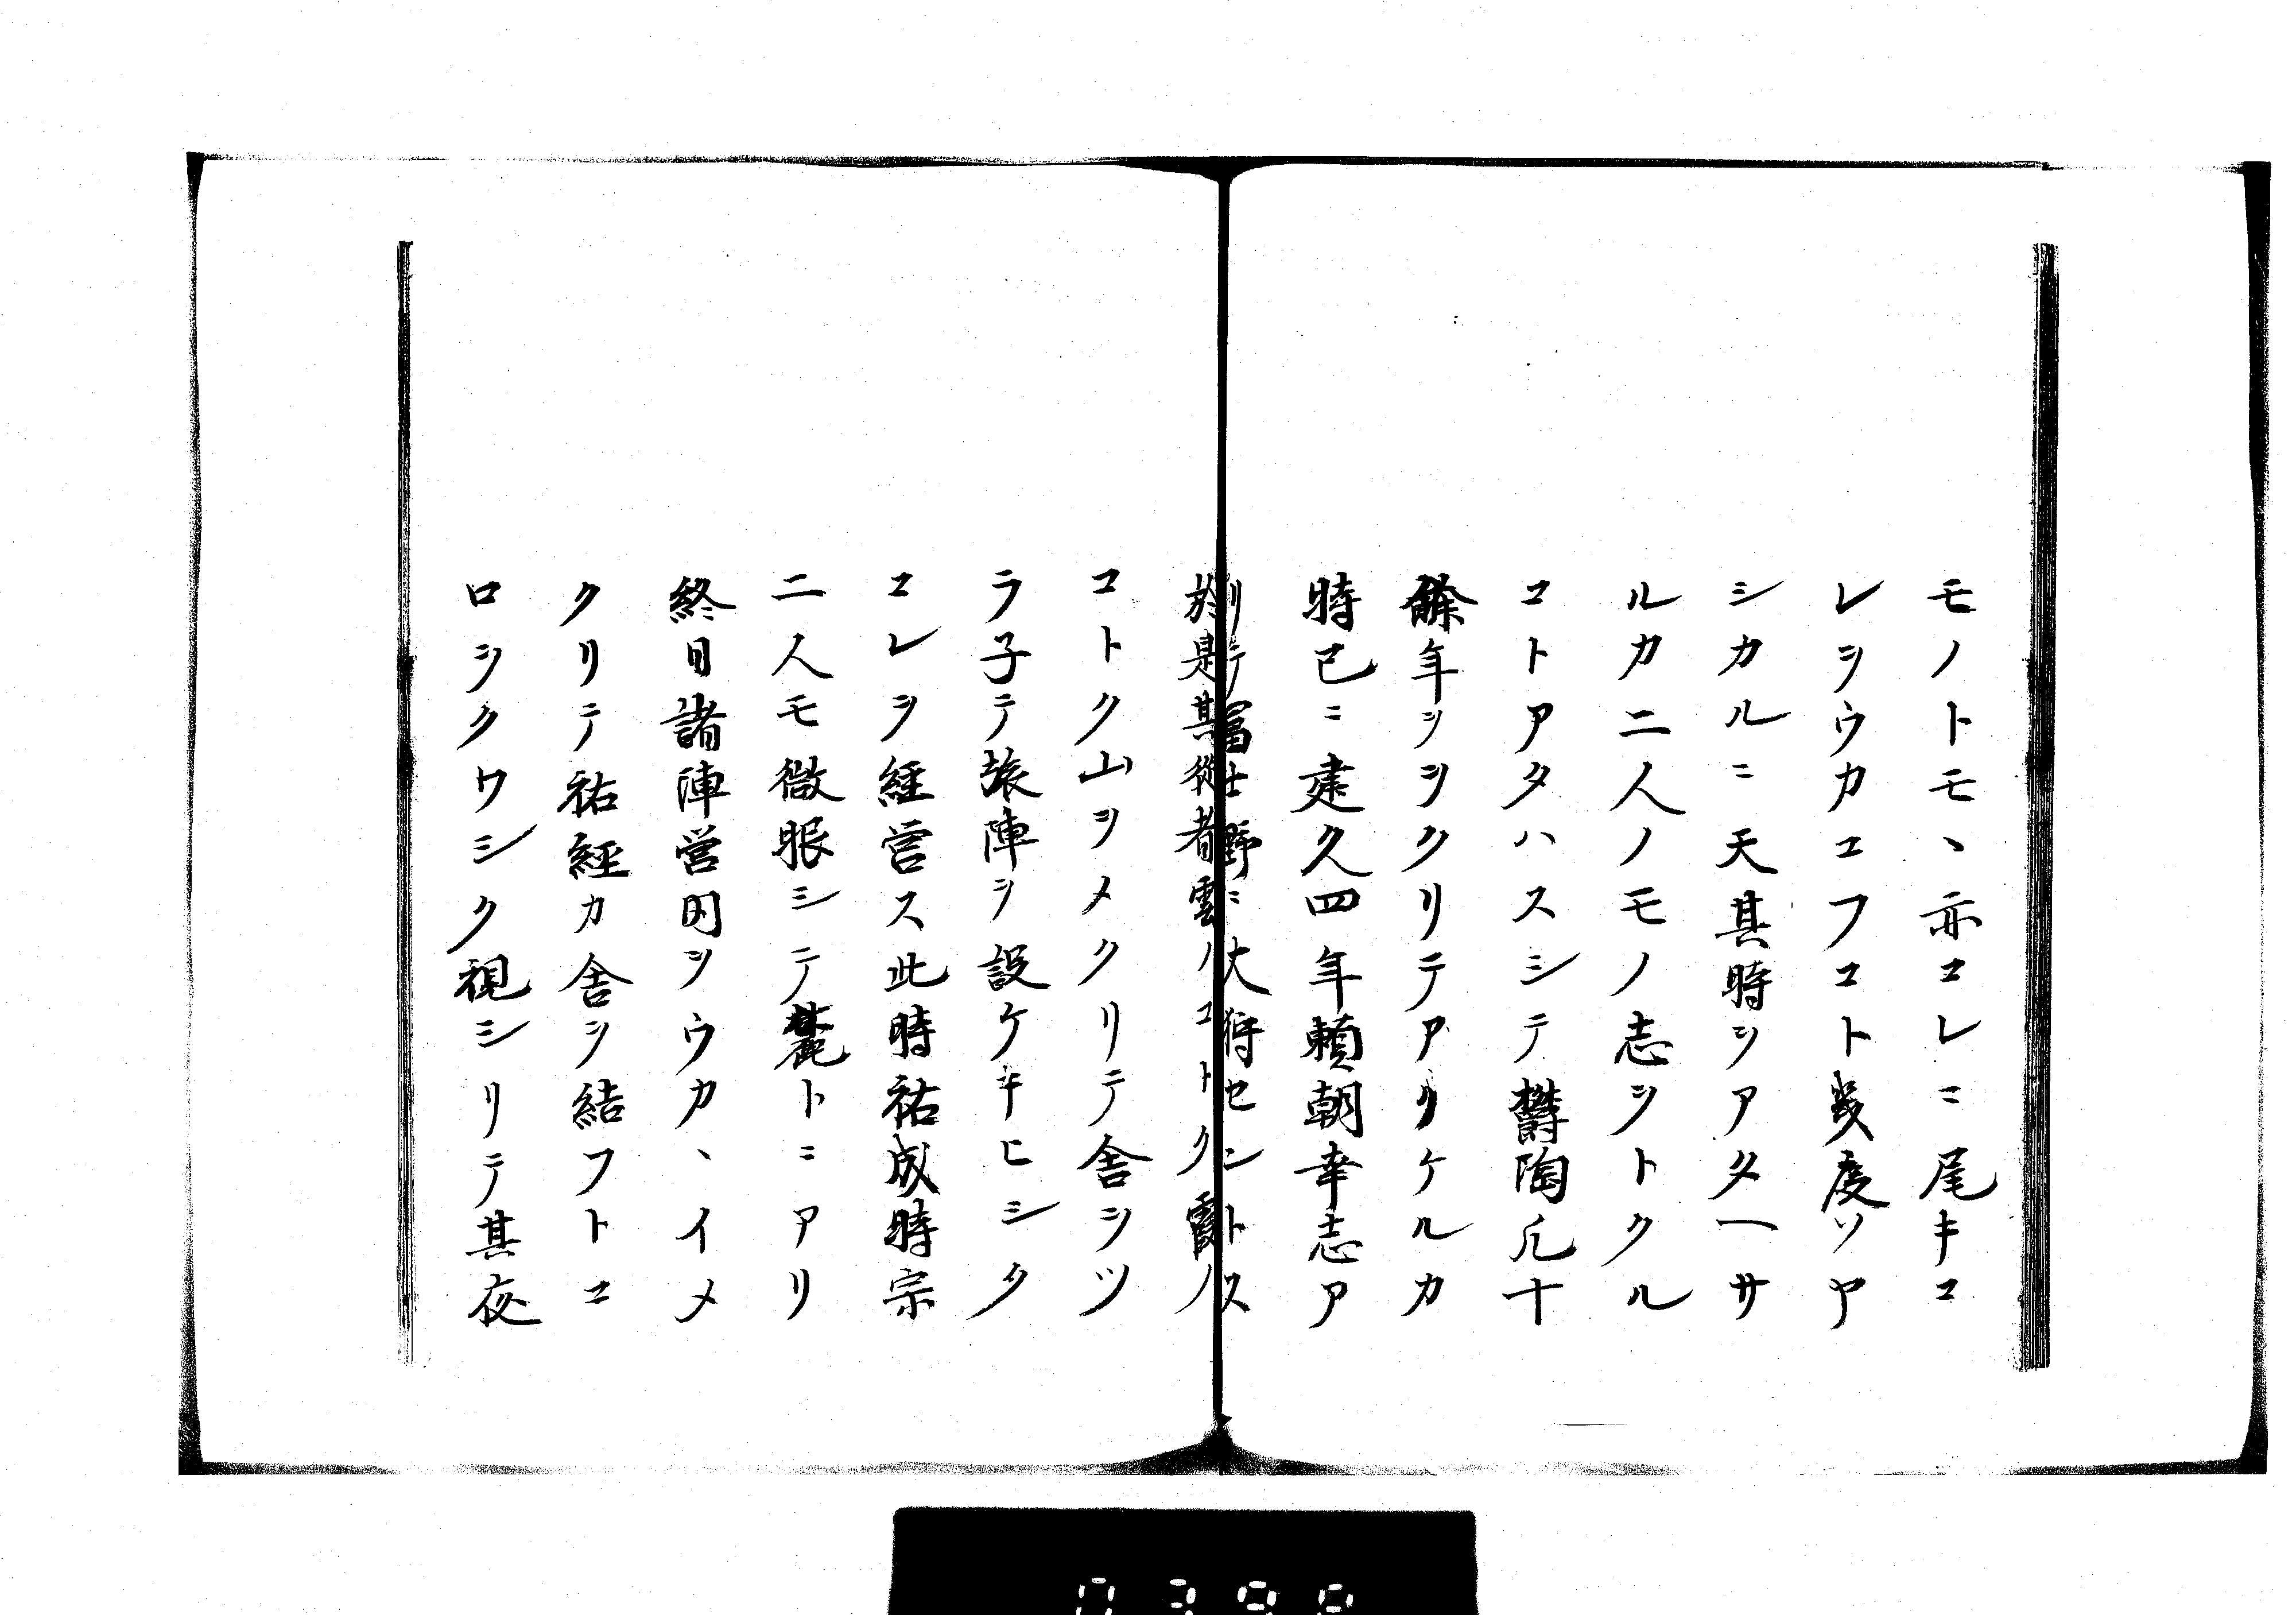 モノトモヽ亦コレニ尾キコ
レヲウカヱフコト幾度ソヤ
シカルニ天其時ヲアタヘサ
ルカ二人ノモノ志ヲトクル
コトアタハスシテ欝陶凡十
餘年ヲヲクリテアリケルカ
時已ニ建久四年頼朝幸志ア
リテ冨士野ニ大狩センントス
於是其從者雲ノコトク霞ノ
コトク山ヲメクリテ舎ヲツ
ラ子テ旅陣ヲ設ケキヒシク
コレヲ経営ス此時祐成時宗
二人モ微服シテ麓トニアリ
終日諸陣営内ヲウカヽイメ
クリテ祐經カ舎ヲ結フトコ
ロヲクワシク視シリテ其夜